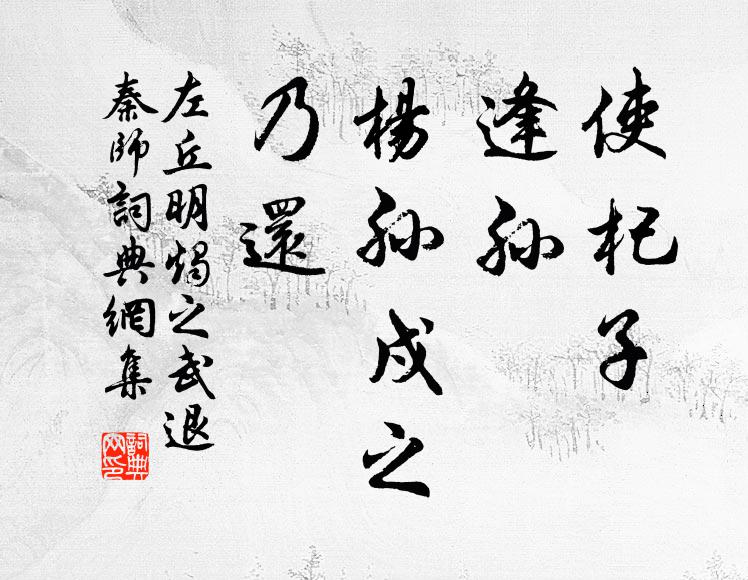 使杞子
逢孙
楊孙戍之
乃還
左丘明燭之武退
秦師詞典網集
詞典
网印